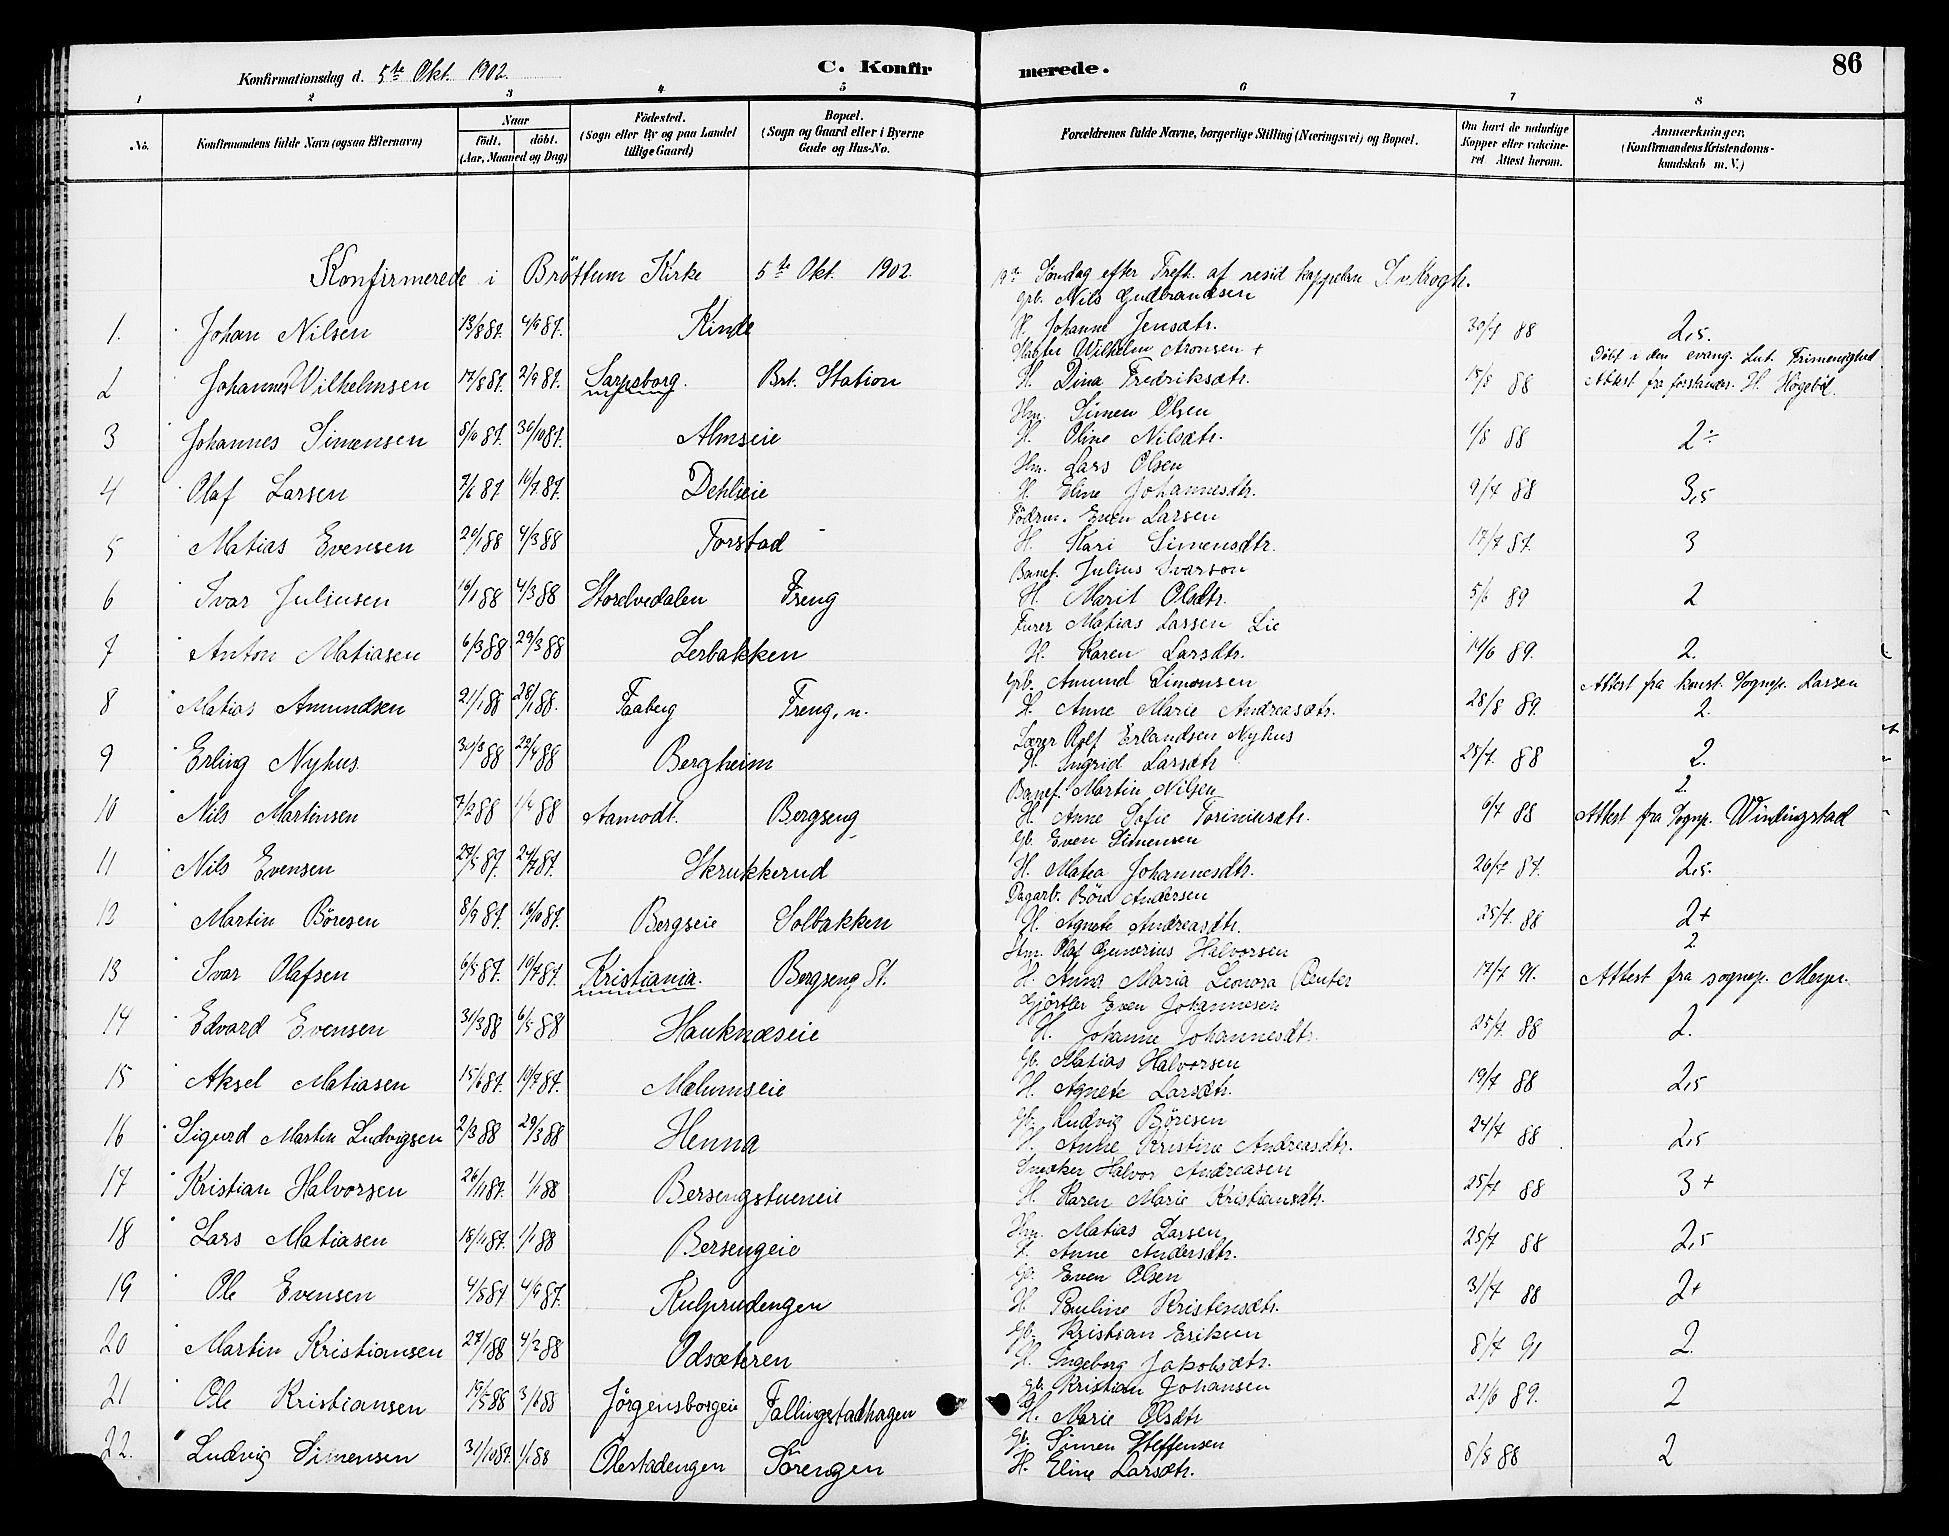 Konfirmationsdag d. 5te Okt. 1902.
C. Konfirmerede.
86
1 2 3 4 5 6 7 8
No.
Konfirmandens fulde Navn (ogsaa Efternavn)
Naar
födt. döbt.
(Aar, Maaned og Dag)
Födested.
(Sogn eller By og paa Landet
tillige Gaard)
Bopæl.
(Sogn og Gaard eller i Byerne
Gade og Hus-No.
Forældrenes fulde Navne, borgerlige Stilling (Næringsvei) og Bopæl.
Om havt de naturlige
Kopper eller vaccine-
ret Attest herom.
Anmærkninger,
(Konfirmandens Kristendoms-
kundskab m. V.)
Konfirmerede i Bröttum Kirke 5te Okt. 1902. 19de Söndag efter Trefh. af resid kappelan S. v Krogh.
Gb. Nils Gudbrandsen
1. Johan Nilsen 13/8 87. 4/9 87. Kinde H. Johanne Jensdtr. 30/7 88 2,5.
Wilhelm Aronsen + Döbt i den evang. Lut. Frimenighed
2 Johannes Vilhelmsen 17/8 87. 2/9 87. Sarpsborg. Brt. Station H. Dina Fredriksdtr. 15/8 88 Attest fra forstander H. Högebøl.
Hm. Simen Olsen
3 Johannes Simensen 8/10 87. 30/10 87. Almseie H. Oline Nilsdtr. 1/8 88 2÷
Hm. Lars Olsen
4 Olaf Larsen 7/6 87 10/7 87. Dehlieie H. Eline Johannesdtr. 9/7 88 3,5
Födrm. Even Larsen
5 Matias Evensen 20/1 88 4/3 88 Torstad H. Kari Simensdtr. 17/7 87. 3
Banef. Julius Ivarson
6 Ivar Juliusen 16/1 88 4/3 88 Stordvedalen Freng H. Marit Olsdtr. 5/6 89 2
Furer Matias Larsen Lie
7 Anton Matiasen 6/3 88 29/3 88 Lerbakken H. Karen Larsdtr. 14/6 89. 2.
Gb. Amund Simonsen Attest fra konst. Sognep. Larsen
8 Matias Amundsen 21/1 88 28/1 88. Faaberg Freng, n. H. Anne Marie Andreasdtr. 28/8 89. 2.
Lærer Rolf Erlandsen Nyhus
9 Erling Nyhus 30/3 88 22/4 88 Bergheim H. Ingrid Larsdtr 25/7. 88 2.
Banef. Martin Nilsen 2.
10 Nils Martinsen 7/2 88 1/4 88 Aamodt. Bergseng H. Anne Sofie Toriniusdtr. 6/7 88 Attest fra Sognep. Windingstad
Gb. Even Simensen
11 Nils Evensen 27/5 87. 24/7 87. Skrukkerud H. Matea Johannesdtr. 26/7 87. 2,5.
Dagarb. Börre Andersen
12 Martin Böresen 8/9 87. 16/10 87. Bergseie Solbakken H. Agnete Andreasdtr. 25/7 88 2+
Hm. Olaf Gunerius Halvorsen 2
13 Ivar Olafsen 6/5 87. 10/7 87. Kristiania. Bergseng St. H. Anna Maria Leonora Reuter 17/7 91. Attest fra sognep. Meyer.
Gjörtler Even Johannesen
14 Edvard Evensen 31/3 88 6/5 88 Hauknæseie H. Johanne Johannesdtr. 25/7. 88 2.
Gb. Matias Halvorsen
15 Aksel Matiasen 15/6 87. 10/7 87. Mælumseie H. Agnete Larsdtr. 19/7 88 2,5
Gb. Ludvig Böresen
16 Sigurd Martin Ludvigsen 2/3 88 29/3 88 Henna H. Anne Kristine Andreasdtr. 24/7 88 2,5
Snedker Halvor Andreasen
17 Kristian Halvorsen 26/11 87. 1/1 88 Bersengstueneie H. Karen Marie Kristiansdtr. 25/7 88 3+
Hm. Matias Larsen
18 Lars Matiasen 18/11 87. 1/1 88 Bersengeie H. Anne Andersdtr. 25/7 88 2,5
Gb. Even Olsen
19 Ole Evensen 4/8 87 4/9 87. Kulprudengen H. Pauline Kristensdtr. 31/7 88 2+
Gb. Kristian Eriksen
20 Martin Kristiansen 27/1 88 4/2 88 Odsæteren H. Ingeborg Jakobsdtr. 8/7 91 2
Gb. Kristian Johansen
21 Ole Kristiansen 19/5 88 3/6 88 Jörgensborgeie Fallingstadhagen H. Marie Olsdtr 21/6 89. 2
Gb. Simen Steffensen
22. Ludvig Simensen 31/10 87. 1/1 88 Olestadengen Sörengen H. Eline Larsdtr. 8/8 88 2